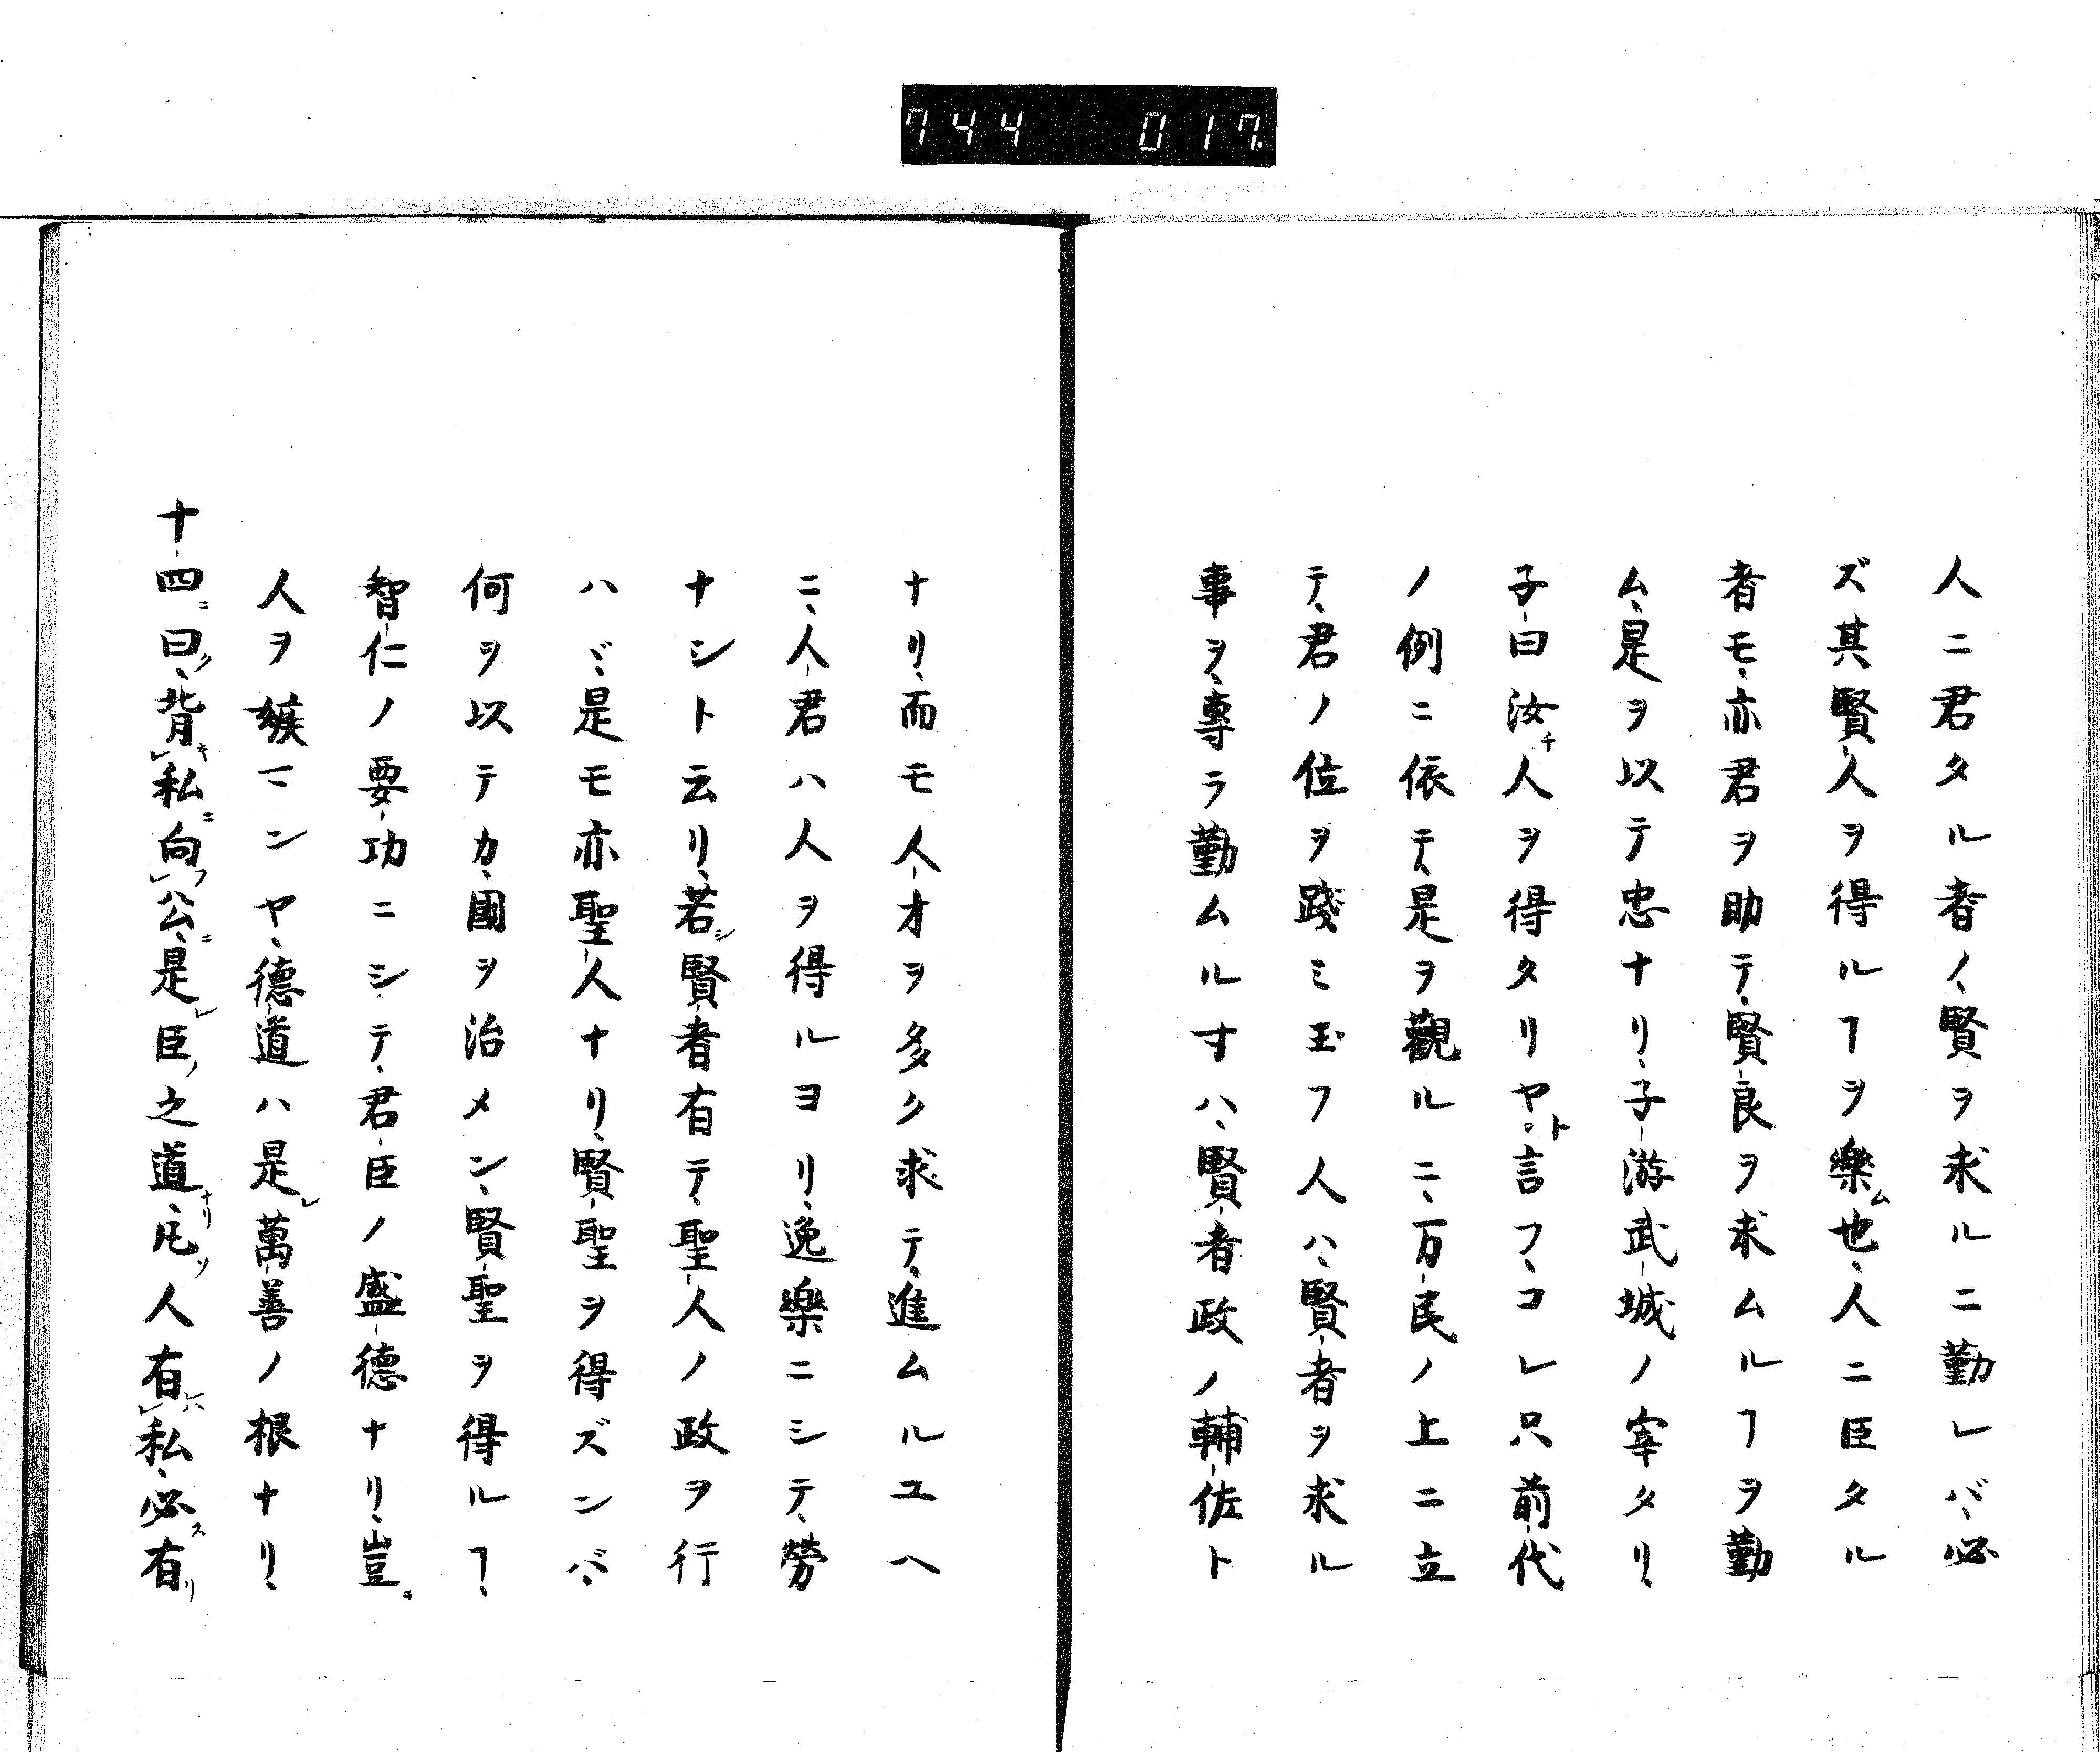 744 017
人ニ君タル者ノ、賢ヲ求ルニ勤レバ、必
ズ其賢人ヲ得ルヿヲ樂ム也、人ニ臣タル
者モ、亦君ヲ助テ、賢良ヲ求ムルヿヲ勤
ム、是ヲ以テ忠ナリ、子游武城ノ宰タリ、
子曰汝チ人ヲ得タリヤ。ト言フ、コレ只前代
ノ例ニ依テ、是ヲ觀ルニ、万民ノ上ニ立
テ、君ノ位ヲ踐ミ玉フ人ハ、賢者ヲ求ル
事ヲ、專ラ勤ムル寸ハ、賢者政ノ輔佐ト
ナリ、而モ人才ヲ多ク求テ、進ムルユヘ
ニ、人君ハ人ヲ得ルヨリ、逸樂ニシテ、勞
ナシト云リ、若シ賢者有テ、聖人ノ政ヲ行
ハヾ、是モ亦聖人ナリ、賢聖ヲ得ズンバ、
何ヲ以テカ、國ヲ治メン、賢聖ヲ得ルヿ、
智仁ノ要功ニシテ、君臣ノ盛德ナリ、豈ニ
人ヲ嫉マンヤ、德道ハ是レ萬善ノ根ナリ、
十四ニ曰ク、背キレ私ニ向フレ公ニ、是レ臣ノ之道ナリ、凡ソ人有レバレ私、必ス有リ